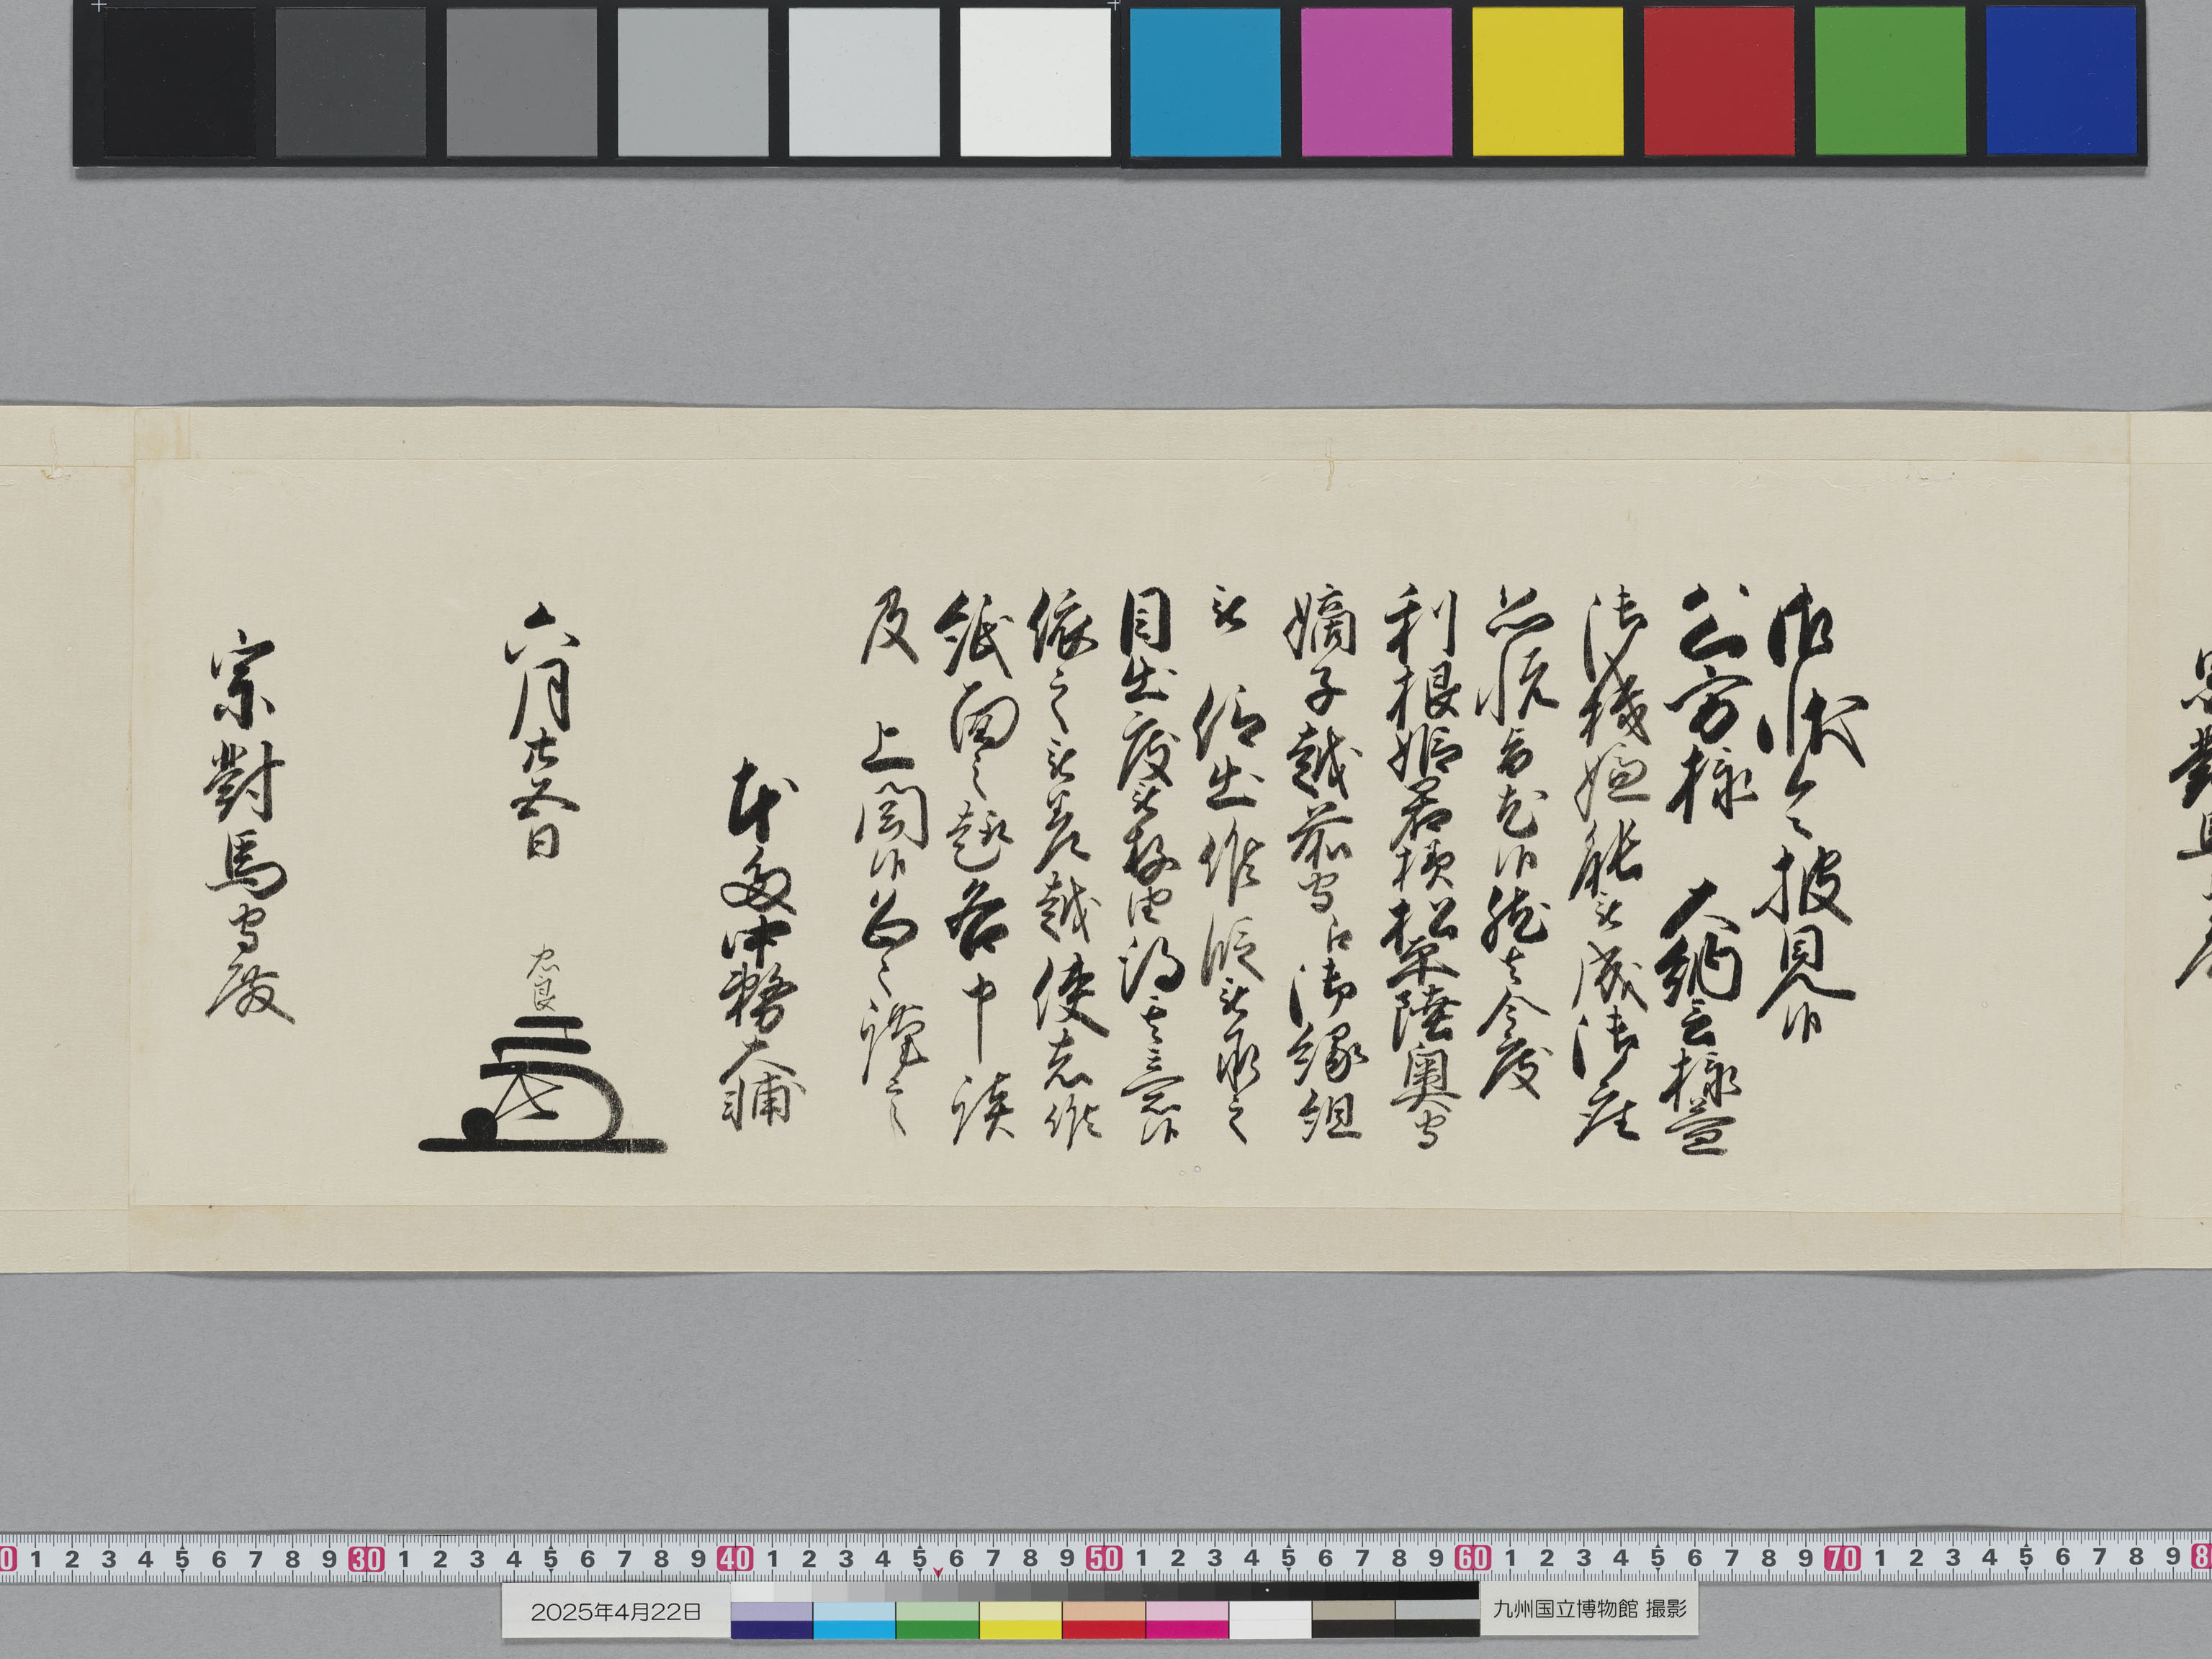 御状令披見候
公方様 大納言様益
御機嫌能被成御座
恐悦旨尤候然者今度
利根姫君様松平陸奥守
嫡子越前守江御縁組
被 仰出候段被承之
目出度被存由得其意候
依之被差越使者候
紙面之趣各申談
及 上聞候恐々謹言
本多中務大輔
六月廿五日
忠良
宗對馬守殿
0 1 2 3 4 5 6 7 8 9 30 1 2 3 4 5 6 7 8 9 40 1 2 3 4 5 6 7 8 9 50 1 2 3 4 5 6 7 8 9 60 1 2 3 4 5 6 7 8 9 70 1 2 3 4 5 6 7 8 9 8
2025年4月22日
九州国立博物館 撮影